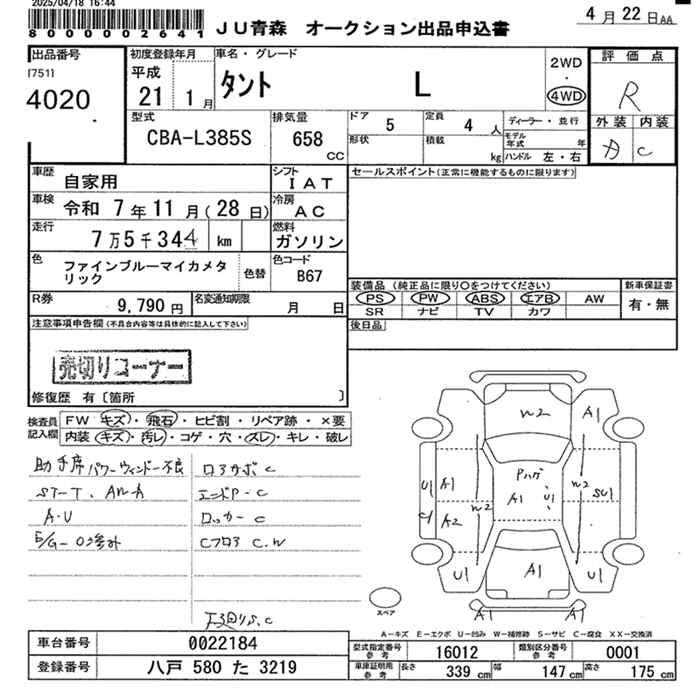 2025/04/18 16:44
8000002641
JU青森 オークション出品申込書
4月22日AA
出品番号
[751]
4020
初度登録年月
平成
21 1月
車名・グレード
タント L
2WD
・
4WD
評価点
R
外装 内装
C
型式
CBA-L385S
排気量
658
CC
ドア 5
形状
定員 4人
積載 kg
ディーラー・並行
モデル年式 年
ハンドル 左・右
車歴
自家用
シフト
IAT
車検 令和 7年11月(28日)
冷房
AC
走行
7万5千344 km
燃料
ガソリン
色
ファインブルーマイカメタリック
色替
色コード
B67
R券
9,790円
名変通知期限
月 日
セールスポイント(正常に機能するものに限ります)
装備品(純正品に限り○をつけてください)
PS PW ABS エアB AW
SR ナビ TV カワ
新車保証書
有・無
後日品
注意事項申告欄(不具合内容等は具体的に記入して下さい)
売切りコーナー
修復歴 有〔箇所 〕
検査員記入欄
FW キズ・飛石・ヒビ割・リペア跡・×要
内装 キズ・汚レ・コゲ・穴・スレ・キレ・破レ
助手席パワーウィンドー不良
ST-T、AW-A
A-U
ロアサポ C
エンドP-C
ロッカーC
Cフロア C.W
W2 A1
U1 A1 W2
A2
Pハゲ
A1 U1
W2 SU1
U1 A1 U1
A1 A1
スペア
A-キズ E-エクボ U-凹み W-補修跡 S-サビ C-腐食 XX-交換済
車台番号 0022184
登録番号 八戸 580 た 3219
型式指定番号 参考 16012
類別区分番号 参考 0001
車庫証明用 参考 長さ 339cm 幅 147cm 高さ 175cm